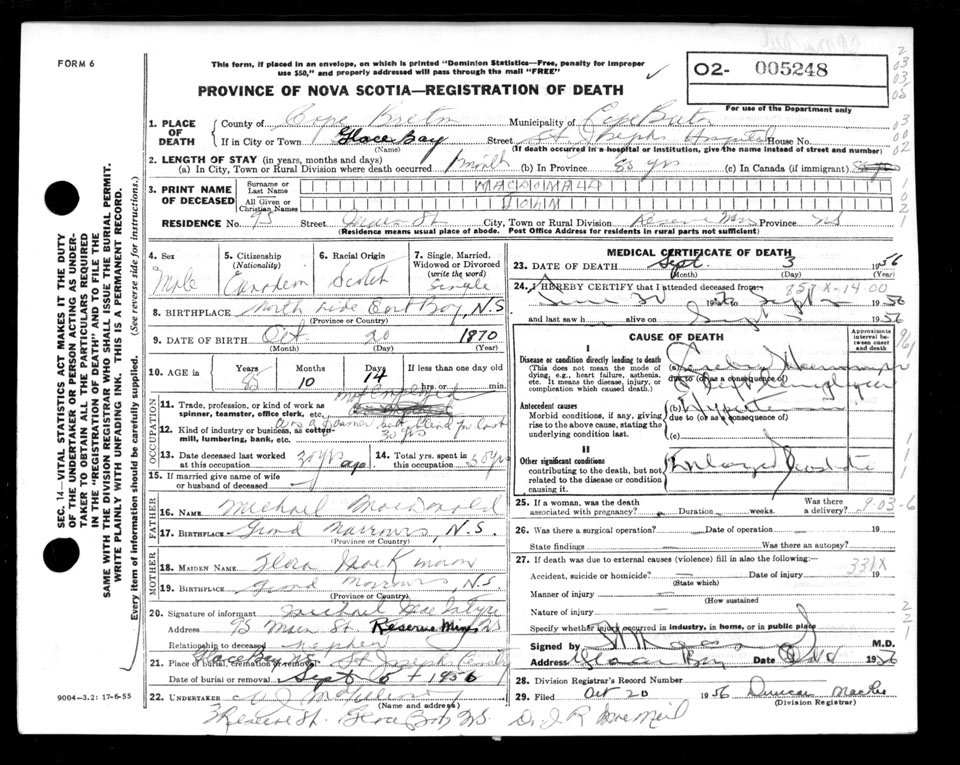 FORM 6
This form, if placed in an envelope, on which is printed "Dominion Statistics—Free, penalty for improper
use $50," and properly addressed will pass through the mail "FREE"
O2- 005248
For use of the Department only
PROVINCE OF NOVA SCOTIA—REGISTRATION OF DEATH
1. PLACE OF DEATH
County of Cape Breton Municipality of Cape Breton
If in City or Town Glace Bay Street St Josephs Hospital House No.
(Name) (If death occurred in a hospital or institution, give the name instead of street and number)
2. LENGTH OF STAY (in years, months and days)
(a) In City, Town or Rural Division where death occurred 1 month (b) In Province 85 yrs (c) In Canada (if immigrant)
3. PRINT NAME OF DECEASED
Surname or Last Name MACDONALD
All Given or Christian Names JOHN
RESIDENCE No. 95 Street Main St. City, Town or Rural Division Reserve Mines Province NS
(Residence means usual place of abode. Post Office Address for residents in rural parts not sufficient)
4. Sex
Male
5. Citizenship (Nationality)
Canadian
6. Racial Origin
Scotch
7. Single, Married, Widowed or Divorced (write the word)
Single
8. BIRTHPLACE North Side East Bay, N.S
(Province or Country)
9. DATE OF BIRTH Oct 20 1870
(Month) (Day) (Year)
10. AGE in Years 85 Months 10 Days 14 If less than one day old hrs. or min.
OCCUPATION
11. Trade, profession, or kind of work as
spinner, teamster, office clerk, etc.
12. Kind of industry or business, as cotton-
mill, lumbering, bank, etc. 30 yrs
13. Date deceased last worked
at this occupation 30 yrs ago
14. Total yrs. spent in
this occupation 50 yrs
15. If married give name of wife
or husband of deceased
FATHER
16. Name Michael MacDonald
17. Birthplace Grand Narrows, N.S.
(Province or Country)
MOTHER
18. Maiden Name Flora MacKinnon
19. Birthplace Grand Narrows, N.S
(Province or Country)
20. Signature of informant Michael MacIntyre
Address 95 Main St. Reserve Mines NS
Relationship to deceased nephew
21. Place of burial, cremation or removal Glace Bay NS St Josephs Cemetery
Date of burial or removal Sept 5th 1956
22. Undertaker
(Name and address)
Reserve St. Glace Bay NS
9004—3.2: 17-6-55
MEDICAL CERTIFICATE OF DEATH
23. DATE OF DEATH Sept. 3 1956
(Month) (Day) (Year)
24. I HEREBY CERTIFY that I attended deceased from 857X-14.00
June 30 1956 to Sept 1956
and last saw h alive on Sept 1956
CAUSE OF DEATH
Approximate interval between onset and death
I
Disease or condition directly leading to death
(This does not mean the mode of
dying, e.g., heart failure, asthenia,
etc. It means the disease, injury, or
complication which caused death.)
(a) Cerebral Hemorrhage
due to (or as a consequence of)
Antecedent causes
Morbid conditions, if any, giving
rise to the above cause, stating the
underlying condition last.
(b)
due to (or as a consequence of)
(c)
II
Other significant conditions
contributing to the death, but not
related to the disease or condition
causing it.
Enlarged Prostate
25. If a woman, was the death
associated with pregnancy? Duration weeks. Was there a delivery? 9-03-6
26. Was there a surgical operation? Date of operation 19
State findings Was there an autopsy?
27. If death was due to external causes (violence) fill in also the following: 331X
Accident, suicide or homicide? Date of injury 19
(State which)
Manner of injury
(How sustained
Nature of injury
Specify whether injury occurred in industry, in home, or in public place
Signed by M.D.
Address Glace Bay Date 1956
28. Division Registrar's Record Number
29. Filed Oct 20 1956 Duncan
(Division Registrar)
Dr. J R MacNeil
SEC. 14—VITAL STATISTICS ACT MAKES IT THE DUTY
OF THE UNDERTAKER OR PERSON ACTING AS UNDER-
TAKER TO OBTAIN ALL THE PARTICULARS REQUIRED
IN THE "REGISTRATION OF DEATH" AND TO FILE THE
SAME WITH THE DIVISION REGISTRAR WHO SHALL ISSUE THE BURIAL PERMIT.
WRITE PLAINLY WITH UNFADING INK. THIS IS A PERMANENT RECORD.
Every item of information should be carefully supplied. (See reverse side for instructions.)